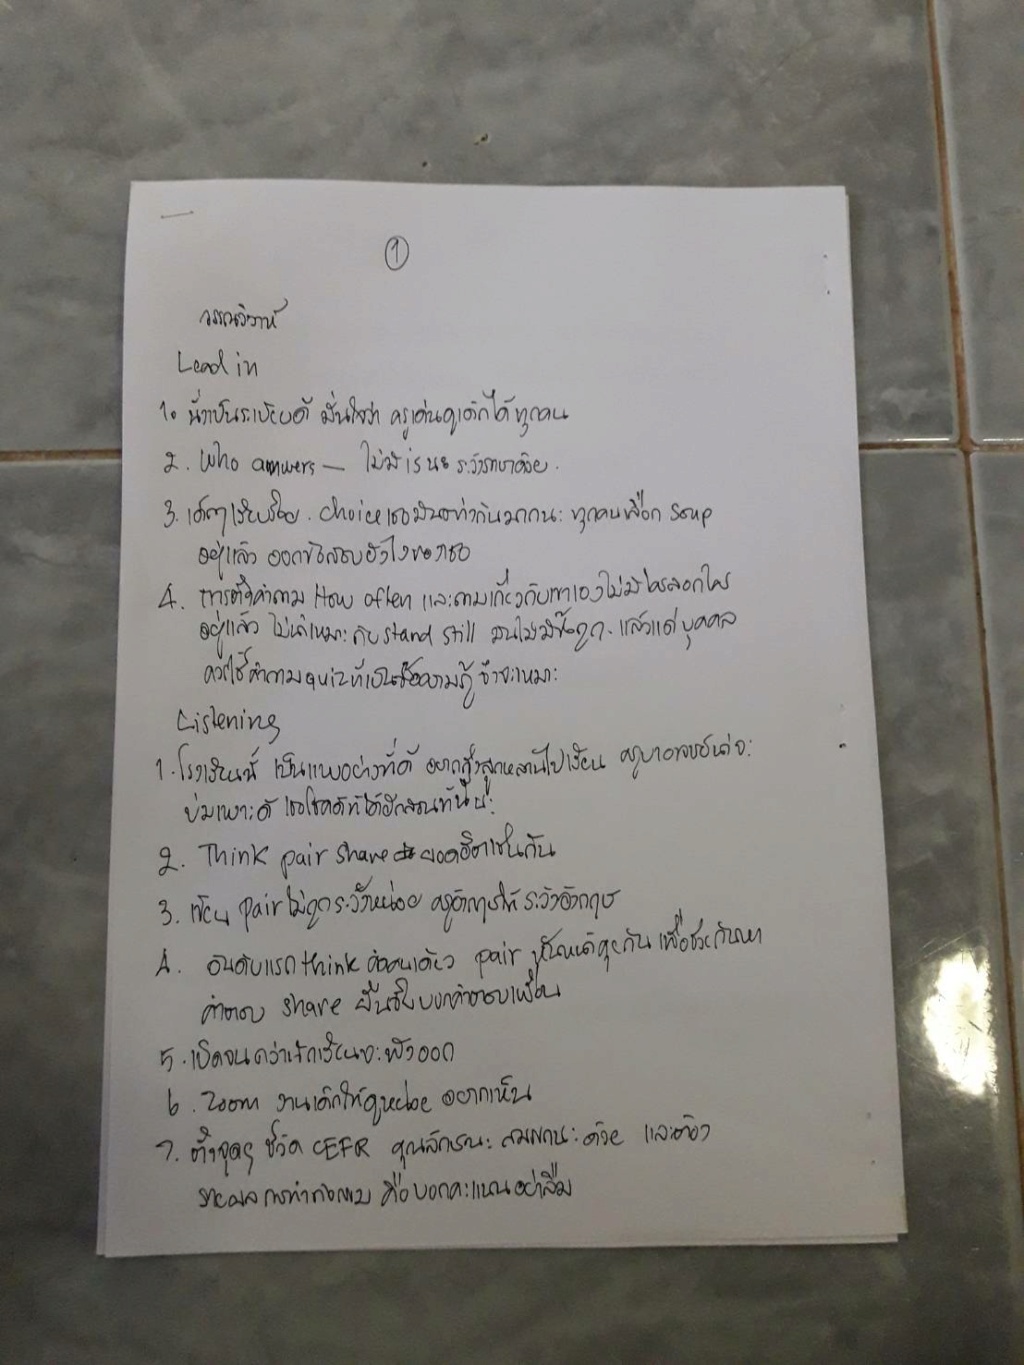 1
Lead in
1. นี่าเป็นระเบียบดี มั่นใจว่า ครูเดินดูเด็กได้ทุกคน
2. Who answers — ไม่มี is นะ ระวังภาษาด้วย.
3. เด็กๆเรียบร้อย. choice เธอมัน เท่ากันมากนะ ทุกคนเลือก soup
อยู่แล้ว ออกข้อสอบยังไงของเธอ
4. การตั้งคำถาม How often และถามเกี่ยวกับเขาเองไม่มีใครลอกใคร
อยู่แล้ว ไม่เหมาะกับ stand still มันไม่มีข้อถูก. แล้วแต่บุคคล
ควรใช้คำถาม quiz ที่เป็นข้อความรู้ จึงจะเหมาะ
Listening
1. โรงเรียนนี้ เป็นแบบอย่างที่ดี อยากส่งลูกหลานไปเรียน ครูบาอาจารย์น่าจะ
บ่มเพาะดี เธอโชคดีที่ได้ฝึกสอนที่นี่นะ
2. Think pair share ยอดฮิตเช่นกัน
3. เขียน pair ไม่ถูกระวังหน่อย ครูอังกฤษให้ระวังอังกฤษ
4. อันดับแรก think คิดคนเดียว pair หันหน้าคุยกัน เพื่อช่วยกันหา
คำตอบ share ยืนขึ้นบอกคำตอบเพื่อน
5. เปิดจนกว่านักเรียนจะฟังออก
6. Zoom งานเด็กให้ดูหน่อย อยากเห็น
7. ตั้งจุดๆ ชี้วัด CEFR คุณลักษณะ สมรรถนะ ด้วย และต้อง
รายผลการทำกิจกรรม คือบอกคะแนนอย่าลืม